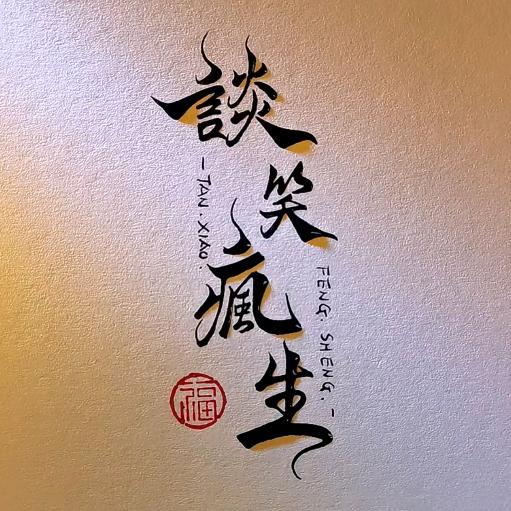 談笑瘋生
– TAN. XIAO.
FENG. SHENG. –
福